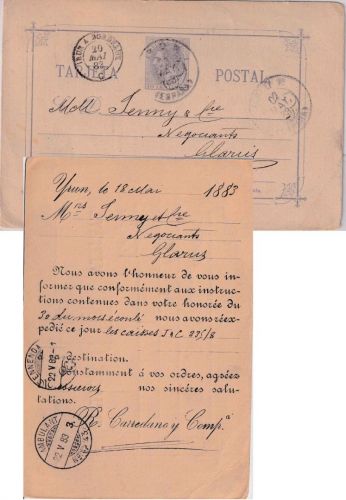 IRUN A BORDEAUX
20
MAI
83
TARJETA POSTAL
MM Jenny & Cie
Negociants
Glaris
Yrun, le 18 Mai 1883
Mrs Jenny et Cie
Negociants
Glaris
Nous avons l'honneur de vous in-
former que conformément aux instruc-
tions contenues dans votre honorée du
30 du mois écoulé nous avons réex-
pédié ce jour les caisses J&C 275/8
destination.
Constamment á vos ordres, agréez
Messieurs, nos sincères salu-
tations.
R. Carredano y Comp.a
ENNENDA
22 V 83 -1
AMBULANT
22 V 83 3